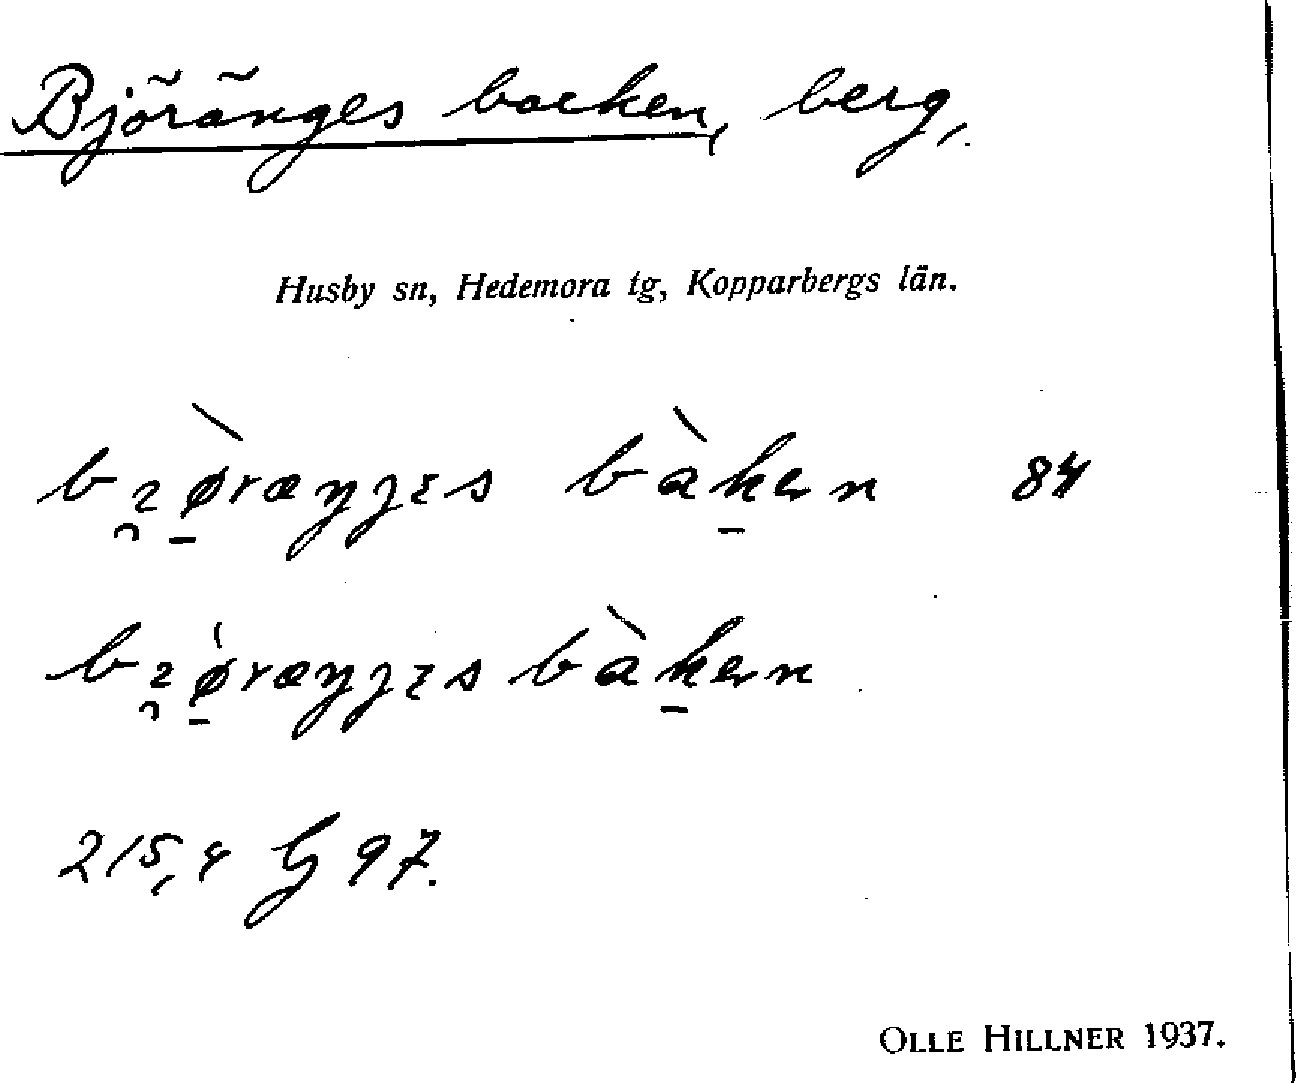 Björänges backen, berg,.
Husby sn, Hedemora tg, Kopparbergs län.
bɿ̯ø̠̀ræŋɟɛs bàk̠en 84
bɿ̯ǿ̠ræŋɟɛs bàk̠en
215,4 G 97.
OLLE HILLNER 1937.